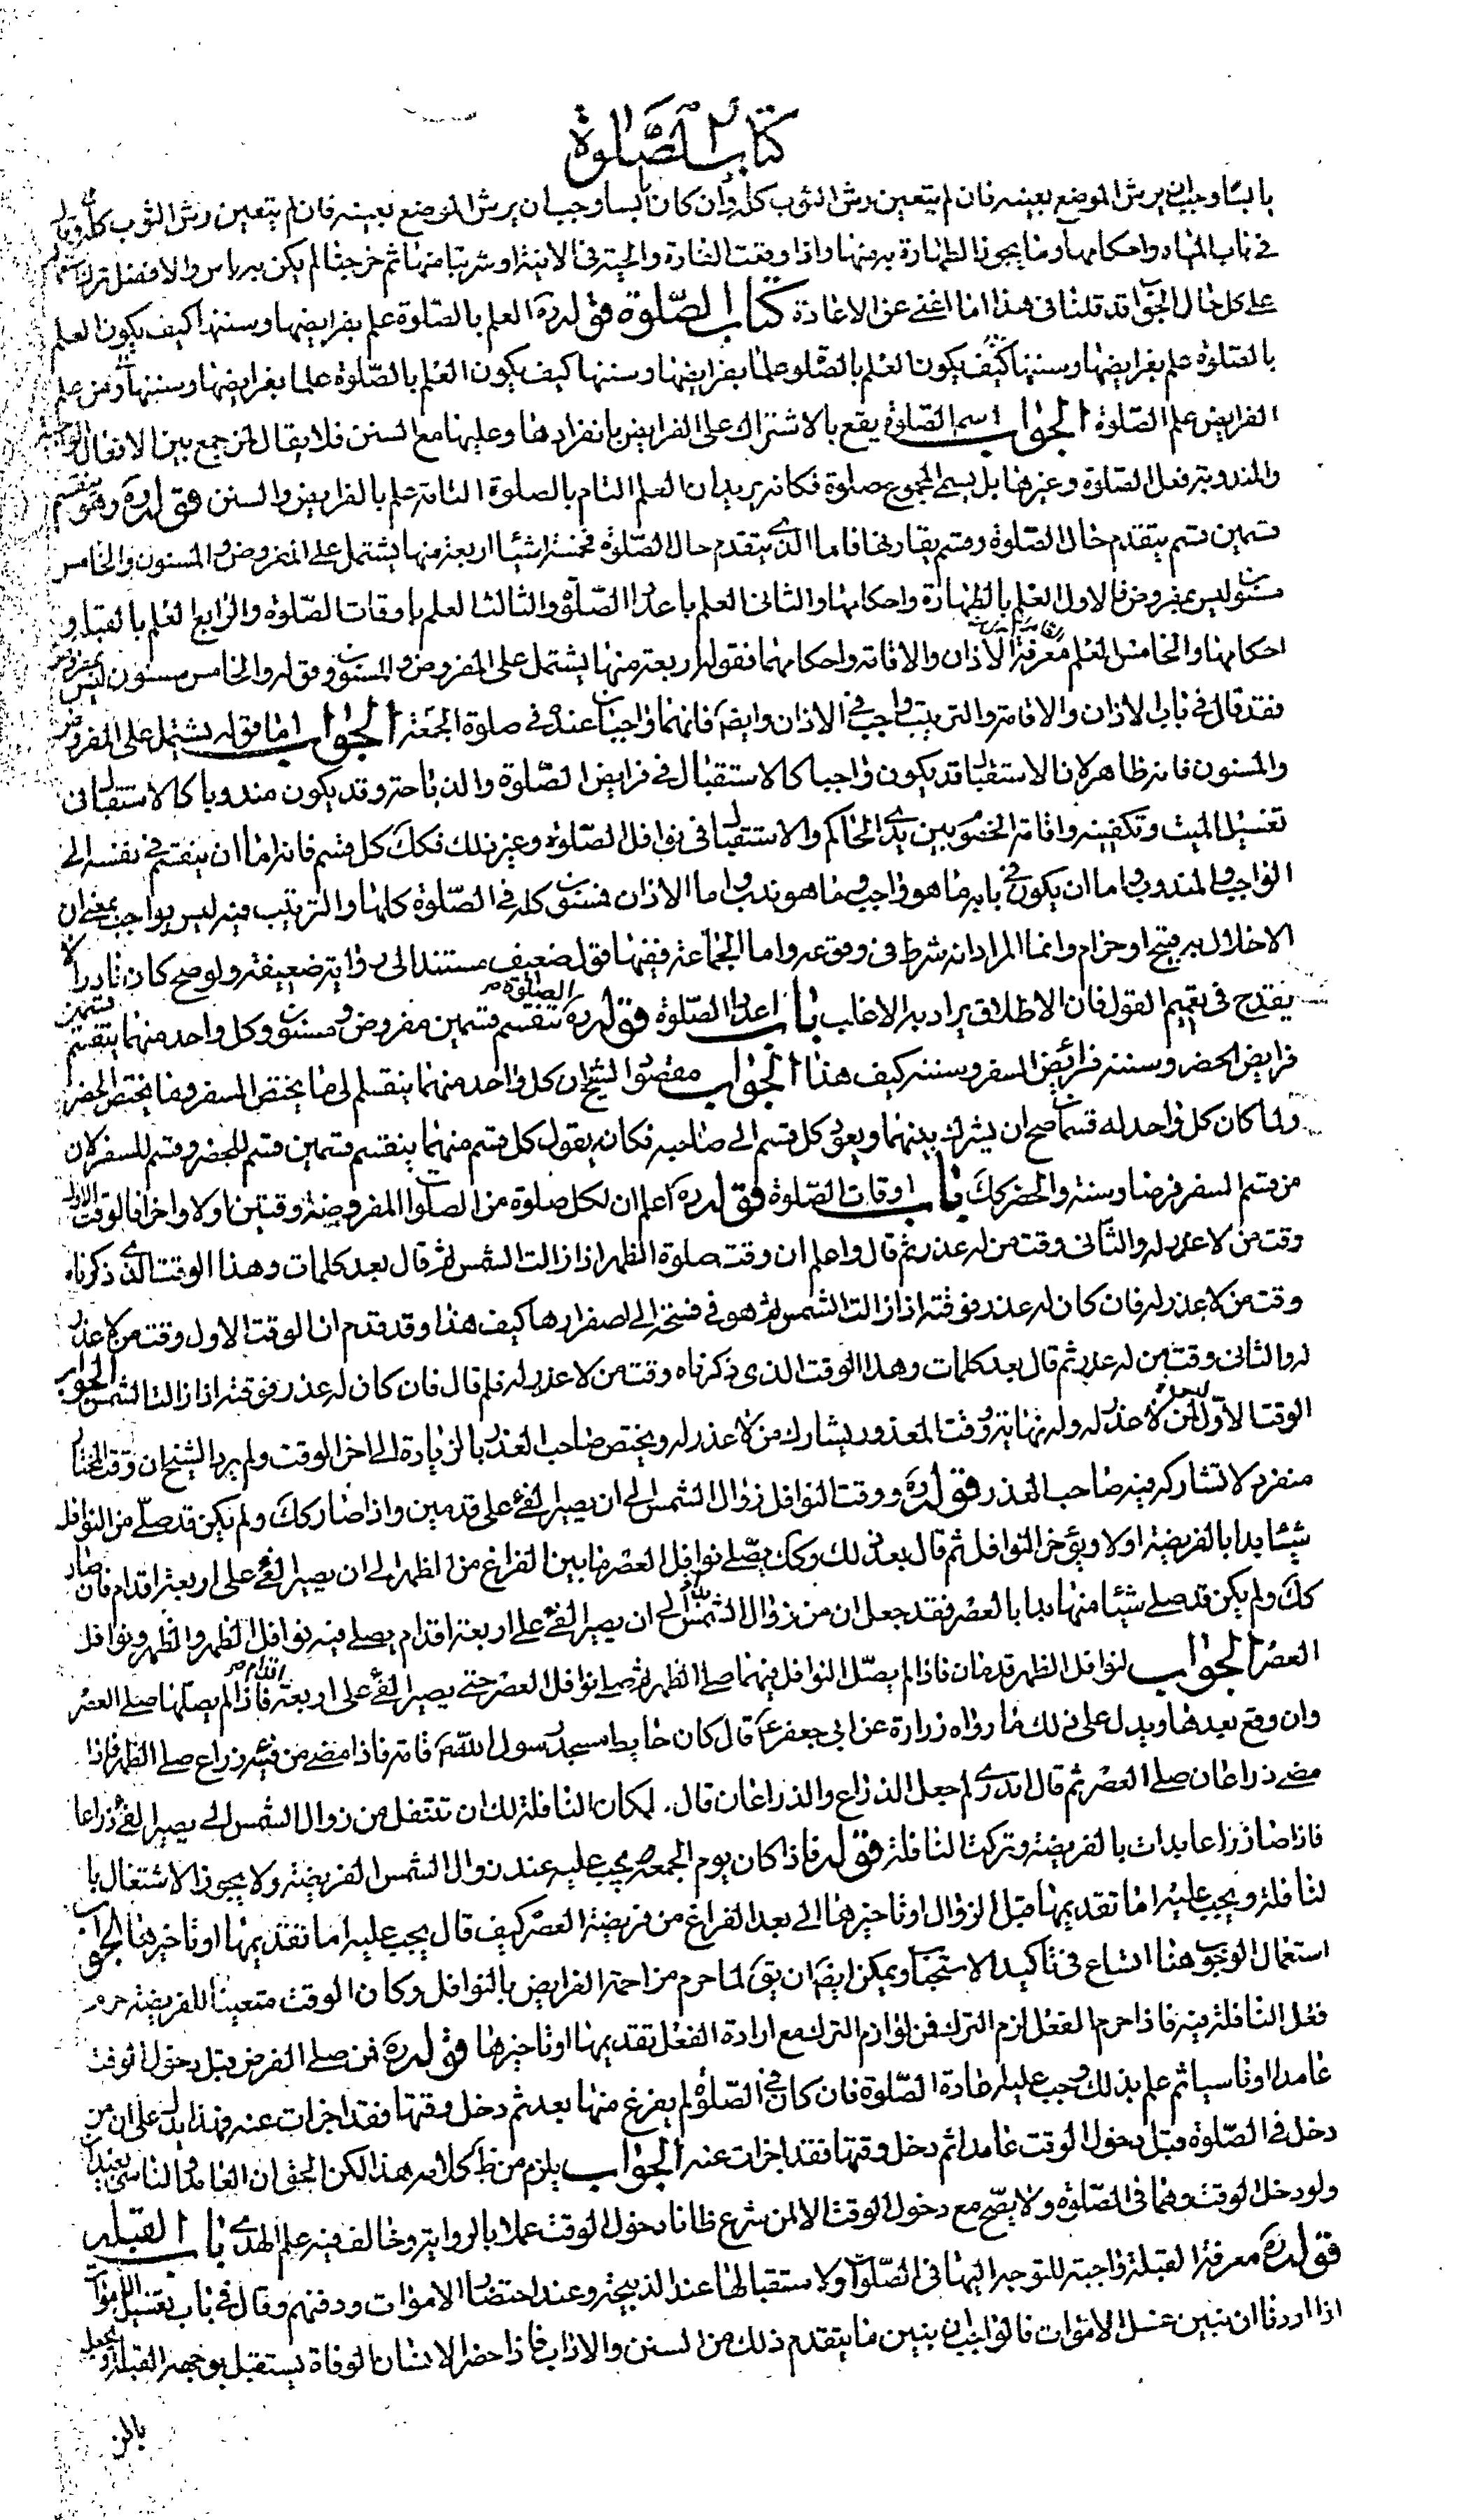 كتاب الصلوة
يابسا وجب ان يرش الموضع بعينه فان لم يتعين رش الثوب كله وان كان يابسا وجب ان يرش الموضع بعينه فان لم يتعين رش الثوب كله وقال
في باب المياه واحكامها وما يجوز الطهارة به منها واذا وقعت الفارة والحية في الانية او شربتا منها ثم خرجتا لم يكن به باس والافضل ترك استعماله
على كل حال الجواب قد قلنا في هذا ما اغنى عن الاعادة كتاب الصلوة قوله ره العلم بالصلوة علم بفرايضها وسننها كيف يكون العلم
بالصلوة علم بفرايضها وسننها كيف يكون العلم بالصلوة علما بفرايضها وسننها كيف يكون العلم بالصلوة علما بفرايضها وسننها ومن علم
الفرايض علم الصلوة الجواب اسم الصلوة يقع بالاشتراك على الفرايض بانفرادها وعليها مع السنن فلا يقال لمن جمع بين الافعال الواجبة
والمندوبة فعل الصلوة وغيرها بل يسمى المجموع صلوة فكانه يريد ان العلم التام بالصلوة التامة علم بالفرايض والسنن قوله ره وهو ينقسم
قسمين قسم يتقدم حال الصلوة وقسم يقارنها فاما الذي يتقدم حال الصلوة فخمسة اشيا اربعة منها يشتمل على المفروض والمسنون والخامس
مسنون ليس بمفروض فالاول العلم بالطهارة واحكامها والثاني العلم باعداد الصلوة والثالث العلم باوقات الصلوة والرابع العلم بالقبلة و
احكامها والخامس العلم معرفة الاذان والاقامة واحكامهما فقوله اربعة منها يشتمل على المفروض والمسنون وقوله والخامس مسنون ليس بمفروض
فقد قال في باب الاذان والاقامة والترتيب واجب في الاذان وايضا فانهما واجبان عنده في صلوة الجمعة الجواب اما قوله يشتمل على المفروض
والمسنون فانه ظاهر لان الاستقبال قد يكون واجبا كالاستقبال في فرايض الصلوة والذباحة وقد يكون مندوبا كالاستقبال في
تغسيل الميت وتكفينه واقامة الخصوم بين يدي الحاكم والاستقبال في نوافل الصلوة وغير ذلك فكك كل قسم فانه اما ان ينقسم في نفسه الى
الواجب والمندوب واما ان يكون في بابه ما هو واجب وما هو ندب واما الاذان فمسنون كله في الصلوة كلها والترتيب فيه ليس بواجب بمعنى ان
الاخلال به قبيح او حرام وانما المراد انه شرط في وقوعه واما الجماعة ففيها قول ضعيف مستند الى رواية ضعيفة ولو صح كان نادرا لا
يقدح في تعميم القول فان الاطلاق يراد به الاغلب باب اعداد الصلوة قوله ره الصلوة تنقسم قسمين مفروض ومسنون وكل واحد منهما ينقسم قسمين
فرايض الحضر وسننه فرائض السفر وسننه كيف هذا الجواب مقصود الشيخ ان كل واحد منهما ينقسم الى ما يختص السفر وما يختص الحضر
ولما كان كل واحد له قسمان صح ان يشرك بينهما ويعود كل قسم الى صاحبه فكانه يقول كل قسم منهما ينقسم قسمين قسم للحضر وقسم للسفر لان
من قسم السفر فرضا وسنة والحضر كك باب اوقات الصلوة قوله ره اعلم ان لكل صلوة من الصلوات المفروضة وقتين اولا واخرا فالوقت الاول
وقت من لا عذر له والثاني وقت من له عذر ثم قال واعلم ان وقت صلوة الظهر اذا زالت الشمس ثم قال بعد كلمات وهذا الوقت الذي ذكرناه
وقت من لا عذر له فان كان له عذر فوقته اذا زالت الشمس ثم هو في فسحة الى اصفرارها كيف هذا وقد قدم ان الوقت الاول وقت من لا عذر
له والثاني وقت من له عذر ثم قال بعد كلمات وهذا الوقت الذي ذكرناه وقت من لا عذر له فلم قال فان كان له عذر فوقته اذا زالت الشمس الجواب
الوقت الاول لمن لا عذر له وله نهاية ووقت المعذور يشارك من لا عذر له ويختص صاحب العذر بالزيادة الى اخر الوقت ولم يرد الشيخ ان وقت المختار
منفرد لا تشاركه فيه صاحب العذر قوله ره ووقت النوافل زوال الشمس الى ان يصير الفئ على قدمين واذا صار كك ولم يكن قد صلى من النوافل
شيئا بدا بالفريضة اولا ويؤخر النوافل ثم قال بعد ذلك وكك يصلى نوافل العصر ما بين الفراغ من الظهر الى ان يصير الفئ على اربعة اقدام فان صار
كك ولم يكن قد صلى شيئا منها بدا بالعصر فقد جعل ان من زوال الشمس الى ان يصير الفئ على اربعة اقدام يصلى فيه نوافل الظهر والظهر ونوافل
العصر الجواب لنوافل الظهر قدمان فاذا لم يصل النوافل فيهما صلى الظهر ثم صلى نوافل العصر حتى يصير الفئ على اربعة اقدام فاذا لم يصلها صلى العصر
وان وقع بعدها ويدل على ذلك ما رواه زرارة عن ابي جعفر ع قال كان حايط مسجد رسول الله ص قامة فاذا مضى من فيئه ذراع صلى الظهر فاذا
مضى ذراعان صلى العصر ثم قال اتدري لم جعل الذراع والذراعان قال لمكان النافلة لك ان تتنفل من زوال الشمس الى يصير الفئ ذراعا
فاذا صار ذراعا بدات بالفريضة وتركت النافلة قوله فاذا كان يوم الجمعة يجب عليه عند زوال الشمس الفريضة ولا يجوز الاشتغال با
لنافلة ويجب عليه اما تقديمها قبل الزوال او تاخيرها الى بعد الفراغ من فريضة العصر كيف قال يجب عليه اما تقديمها او تاخيرها الجواب
استعمال الوجوب هنا اتساع في تاكيد الاستحباب ويمكن ايضا ان يق لما حرم مزاحمة الفرايض بالنوافل وكان الوقت متعينا للفريضة حرم
فعل النافلة فيه فاذا حرم الفعل لزم الترك فمن لوازم الترك مع ارادة الفعل تقديمها او تاخيرها قوله ره فمن صلى الفرض قبل دخول الوقت
عامدا او ناسيا ثم علم بذلك وجب عليه اعادة الصلوة فان كان في الصلوة لم يفرغ منها بعد ثم دخل وقتها فقد اجزات عنه فهذا يدل على ان من
دخل في الصلوة قبل دخول الوقت عامدا ثم دخل وقتها فقد اجزات عنه الجواب يلزم من ظ كلامه هذا لكن الحق ان العامد والناسي يعيدان
ولو دخل الوقت وهما في الصلوة ولا يصح مع دخول الوقت الا لمن شرع ظانا دخول الوقت عملا بالرواية وخالف فيه علم الهدى باب القبلة
قوله ره معرفة القبلة واجبة للتوجه اليها في الصلوات ولاستقبالها عند الذبيحة وعند احتضار الاموات ودفنهم وقال في باب تغسيل الاموات
اذا اردنا ان نبين غسل الاموات فالواجب ان نبين ما يتقدم ذلك من السنن والاداب فاذا حضر الانسان الوفاة يستقبل بوجهه القبلة ويجعل
باطن